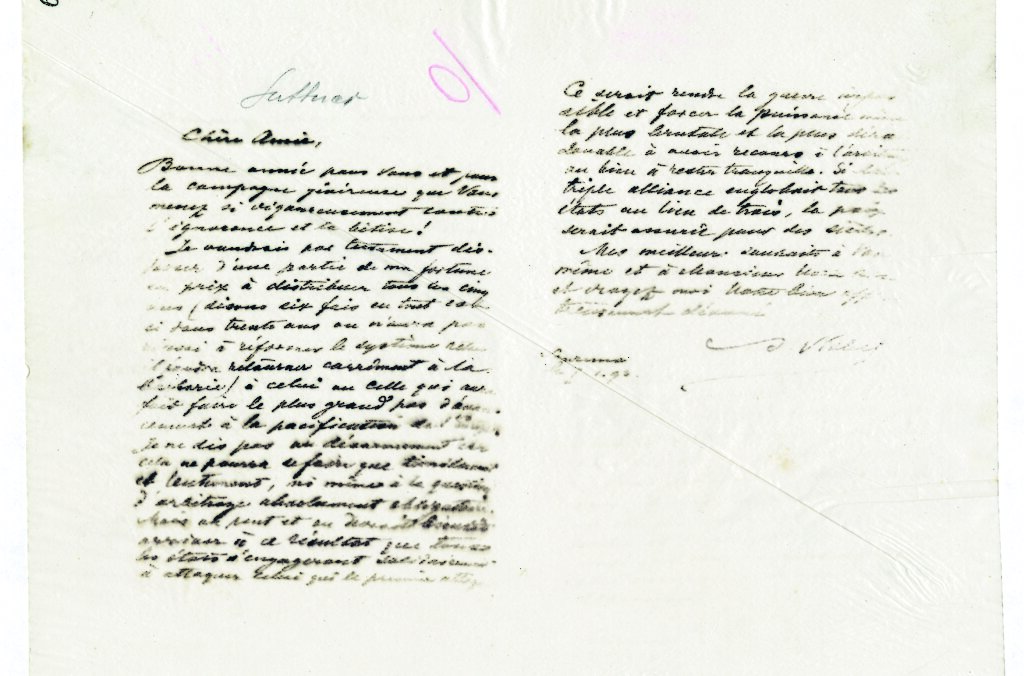 Suttner
Chère Amie,
Bonne année pour Vous et pour
la campagne généreuse que Vous
menez si vigoureusement contre
l'ignorance et la bêtise!
Je voudrais par testament dis-
poser d'une partie de ma fortune
en prix à distribuer tous les cinq
ans (disons six fois en tout car
si dans trente ans on n'aura pas
réussi à réformer le système
il faudra retourner carrément à la
barbarie) à celui ou celle qui au-
rait faire le plus grand pas
à la pacification de l'
Je ne dis pas au désarmement car
cela ne pourra se faire que timidement
et lentement, ni même à la question
d'arbitrage absolument obligatoire.
Mais on peut et on devrait bientôt
arriver à ce résultat que tous
les états s'engageront solidairement
à attaquer celui qui le premier
Ce serait rendre la guerre impos-
sible et forcer la puissance même
la plus brutale et la plus
à avoir recours à
ou bien à rester tranquille. Si la
triple alliance englobait tous les
états au lieu de trois, la paix
serait assurée pour des siècles.
Mes meilleur souhaits à Vous
même et à Monsieur
et croyez moi Votre bien
dévoué
A Nobel